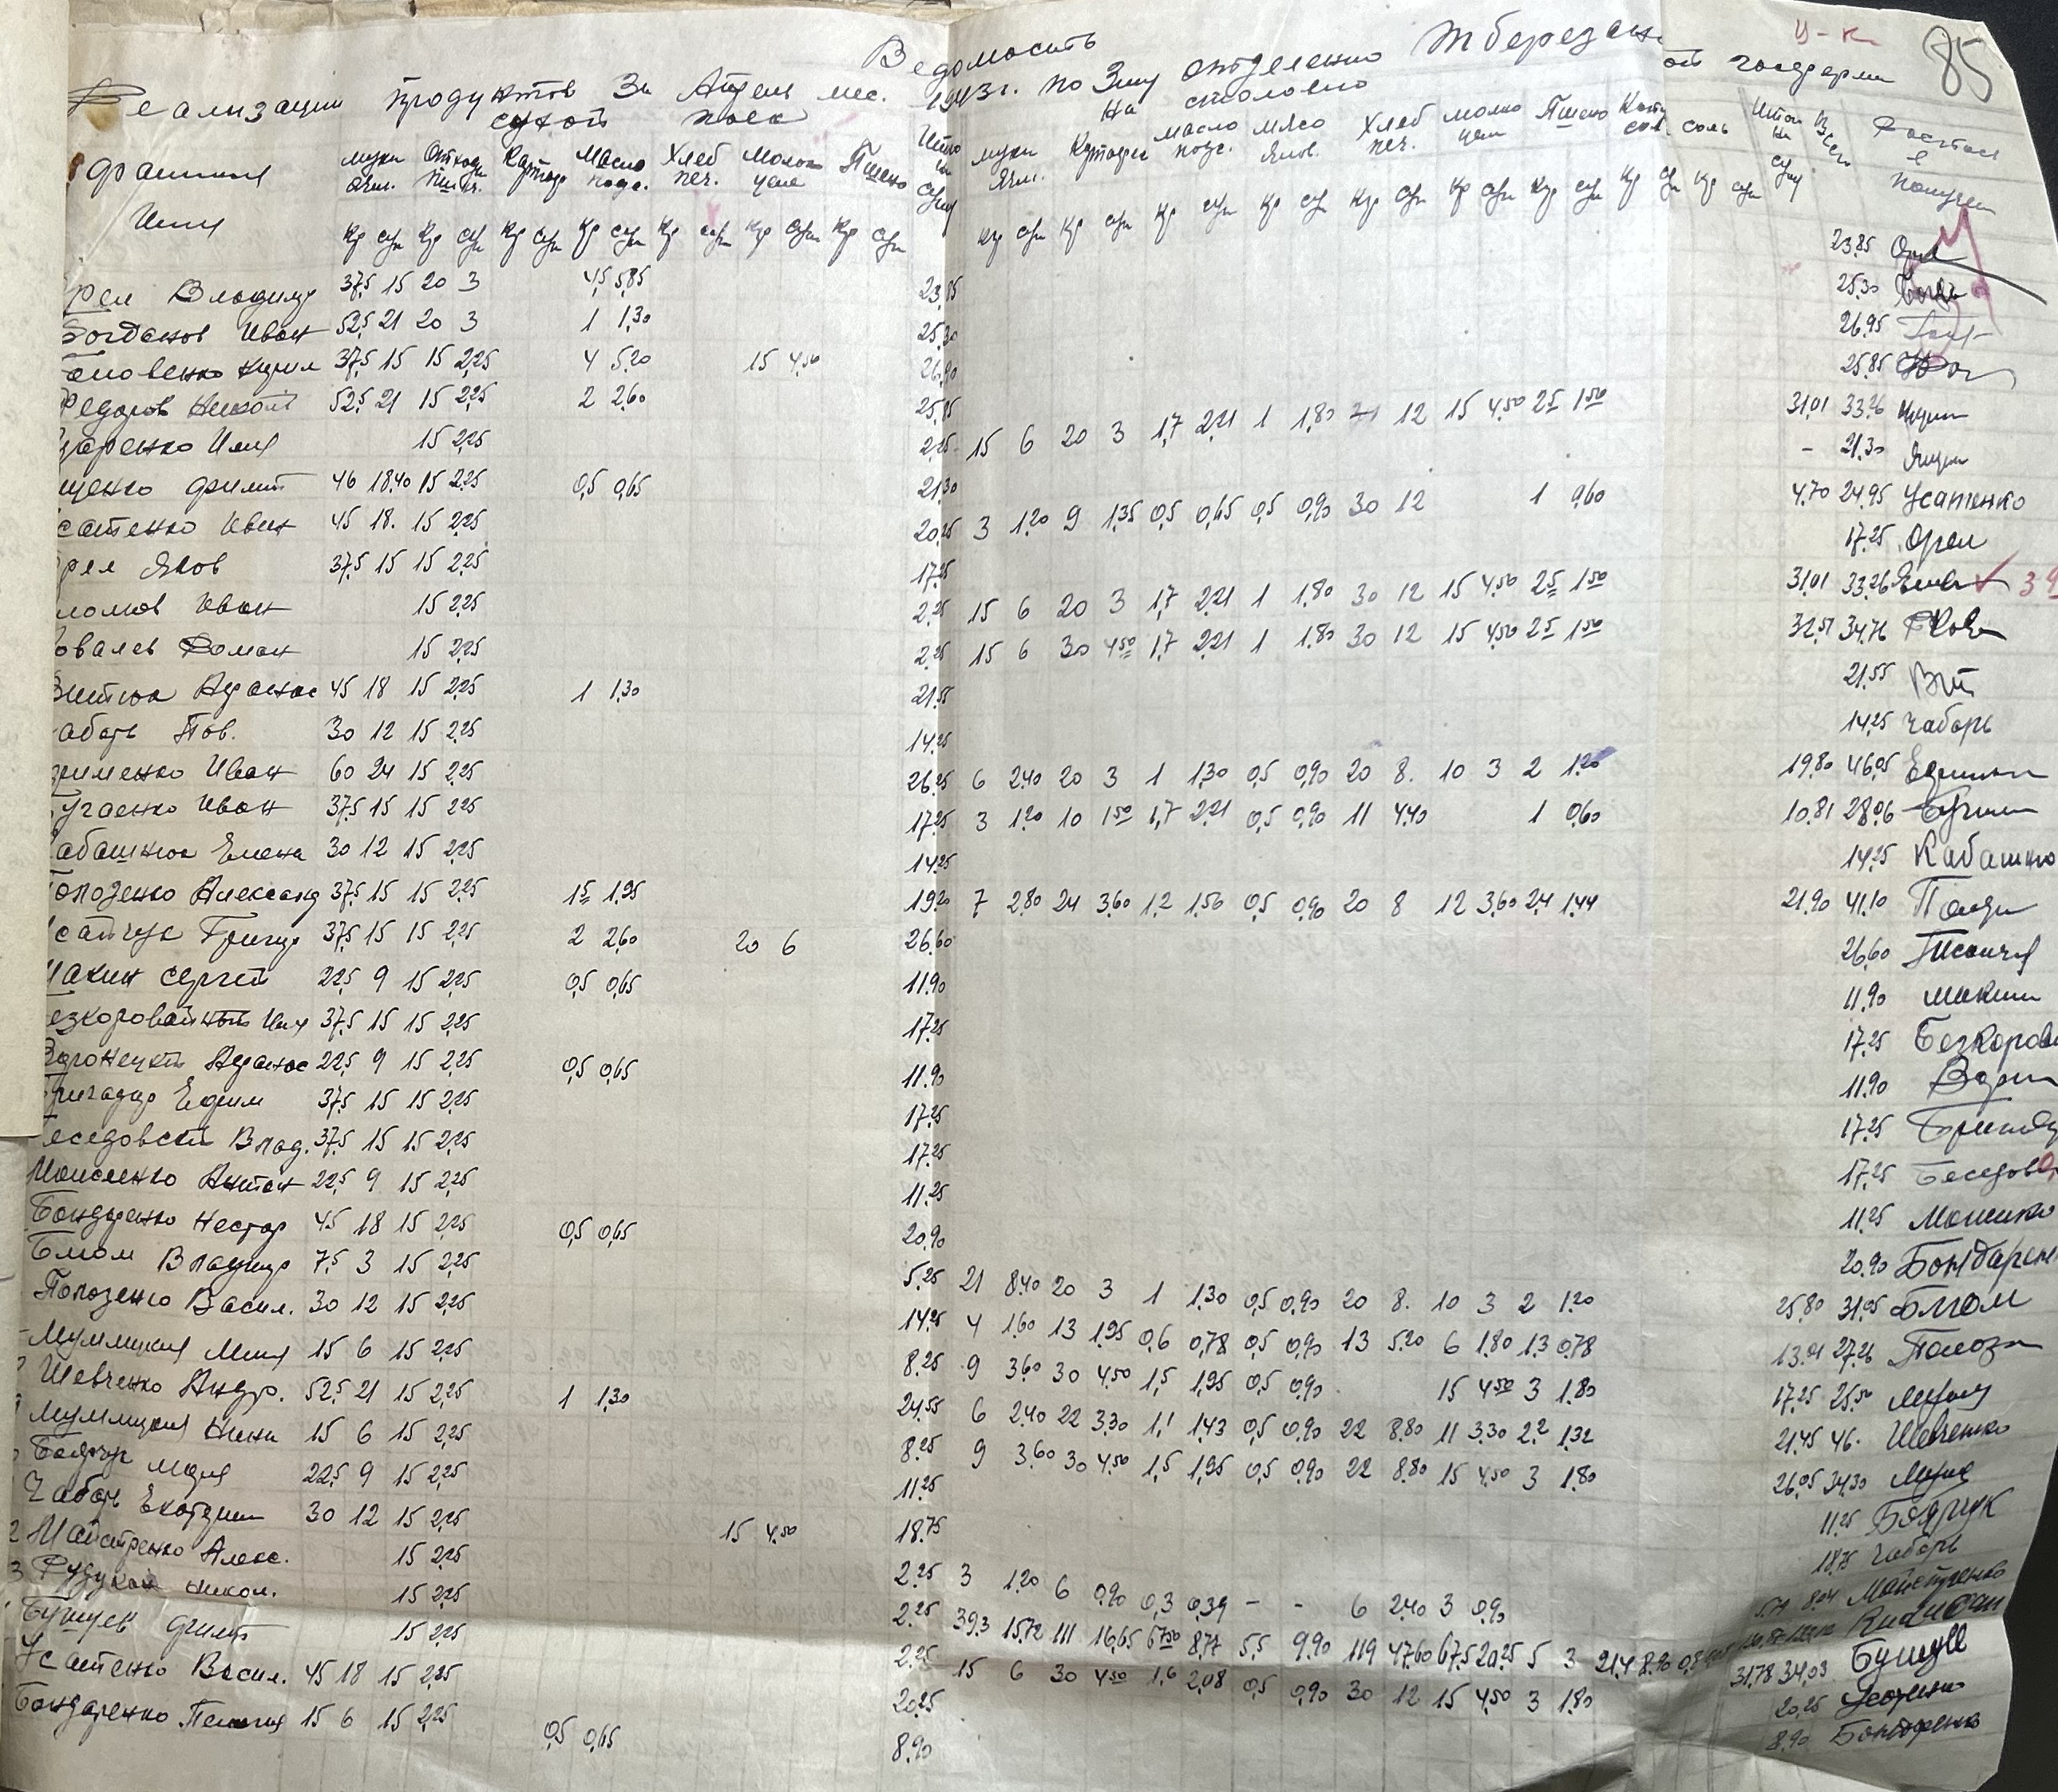 Ведомость
Реализации продуктов За Апрель мес. 1943г. по 3му отделению Тберезан ой госферми
сухой паек На столовую
У-к 85
фамилия муки ячн. Отходы Картоф Масло подс. Хлеб печ. Молоко цело Пшено Итого на сум муки ячн. Картофел масло подс. мясо ялов. Хлеб печ. молоко цел Пшено соль Итого на сум Всего Роспись в получен
Имя Кр сум Кр сум Кр сум Кр сум Кр сум Кр сум Кр сум Кр сум Кр сум Кр сум Кр сум Кр сум Кр сум Кр сум Кр сум Кр сум
рел Владимир 37,5 15 20 3 4,5 5,85 23,85 23,85 Орел
Богданов Иван 52,5 21 20 3 1 1,30 25,30 25,30
оловенко Кирил 37,5 15 15 2,25 4 5,20 15 4,50 26,90 26,95
Федоров Николай 52,5 21 15 2,25 2 2,60 25,85 25,85
заренко Илия 15 2,25 2,25 15 6 20 3 1,7 2,21 1 1,80 12 15 4,50 2,5 1,50 31,01 33,26
щенко филип 46 18,40 15 2,25 0,5 0,65 21,30 - 21,30
сатенко Иван 45 18. 15 2,25 20,25 3 1,20 9 1,35 0,5 0,65 0,5 0,90 30 12 1 0,60 4,70 24,95 Усатенко
рел Яков 37,5 15 15 2,25 17,25 17,25 Орел
ломов Иван 15 2,25 2,25 15 6 20 3 1,7 2,21 1 1,80 30 12 15 4,50 2,5 1,50 31,01 33,26
овалев Роман 15 2,25 2,25 15 6 30 4,50 1,7 2,21 1 1,80 30 12 15 4,50 2,5 1,50 32,51 34,76
Витюк Афанас 45 18 15 2,25 1 1,30 21,55 21,55 Вит
абарь Пав. 30 12 15 2,25 14,25 14,25 Чабарь
фименко Иван 60 24 15 2,25 26,25 6 2,40 20 3 1 1,30 0,5 0,90 20 8. 10 3 2 1,20 19,80 46,05
угаенко Иван 37,5 15 15 2,25 17,25 3 1,20 10 1,50 1,7 2,21 0,5 0,90 11 4,40 1 0,60 10,81 28,06
абашнюк Елена 30 12 15 2,25 14,25 14,25 Кабашню
Полозенко Александ 37,5 15 15 2,25 1,5 1,95 19,20 7 2,80 24 3,60 1,2 1,56 0,5 0,90 20 8 12 3,60 2,4 1,44 21,90 41,10
сайчук Григор 37,5 15 15 2,25 2 2,60 20 6 26,60 26,60
Макин Сергей 22,5 9 15 2,25 0,5 0,65 11,90 11,90 Макин
езкоровайный Илия 37,5 15 15 2,25 17,25 17,25 Безкорова
Воронецкий Афанас 22,5 9 15 2,25 0,5 0,65 11,90 11,90
ригадир Ефим 37,5 15 15 2,25 17,25 17,25
еседовский Влад. 37,5 15 15 2,25 17,25 17,25 Беседов
Моисеенко Антон 22,5 9 15 2,25 11,25 11,25
Бондаренко Нестор 45 18 15 2,25 0,5 0,65 20,90 20,90 Бондарен
Блюм Владимир 7,5 3 15 2,25 5,25 21 8,40 20 3 1 1,30 0,5 0,90 20 8. 10 3 2 1,20 25,80 31,05 Блюм
Полозенко Васил. 30 12 15 2,25 14,25 4 1,60 13 1,95 0,6 0,78 0,5 0,90 13 5,20 6 1,80 1,3 0,78 13,01 27,26 Полоз
15 6 15 2,25 8,25 9 3,60 30 4,50 1,5 1,95 0,5 0,90 15 4,50 3 1,80 17,25 25,50
Шевченко Андр. 52,5 21 15 2,25 1 1,30 24,55 6 2,40 22 3,30 1,1 1,43 0,5 0,90 22 8,80 11 3,30 2,2 1,32 21,45 46. Шевченко
Нина 15 6 15 2,25 8,25 9 3,60 30 4,50 1,5 1,95 0,5 0,90 22 8,80 15 4,50 3 1,80 26,05 34,30
Боярчук Мария 22,5 9 15 2,25 11,25 11,25 Боярчук
Чабарь Екатерин 30 12 15 2,25 15 4,50 18,75 18,75 Чабарь
2 Майстренко Алекс. 15 2,25 2,25 3 1,20 6 0,90 0,3 0,39 - - 6 2,40 3 0,90 8,04 Майстренко
3 Рудукан Никол. 15 2,25 2,25 39,3 15,72 111 16,65 8,77 5,5 9,90 119 47,60 67,5 20,25 5 3 21,4
Бушуев филип 15 2,25 2,25 15 6 30 4,50 1,6 2,08 0,5 0,90 30 12 15 4,50 3 1,80 31,78 34,03 Бушуев
Усатенко Васил. 45 18 15 2,25 20,25 20,25
Бондаренко Пелагия 15 6 15 2,25 0,5 0,65 8,90 8,90 Бондаренко